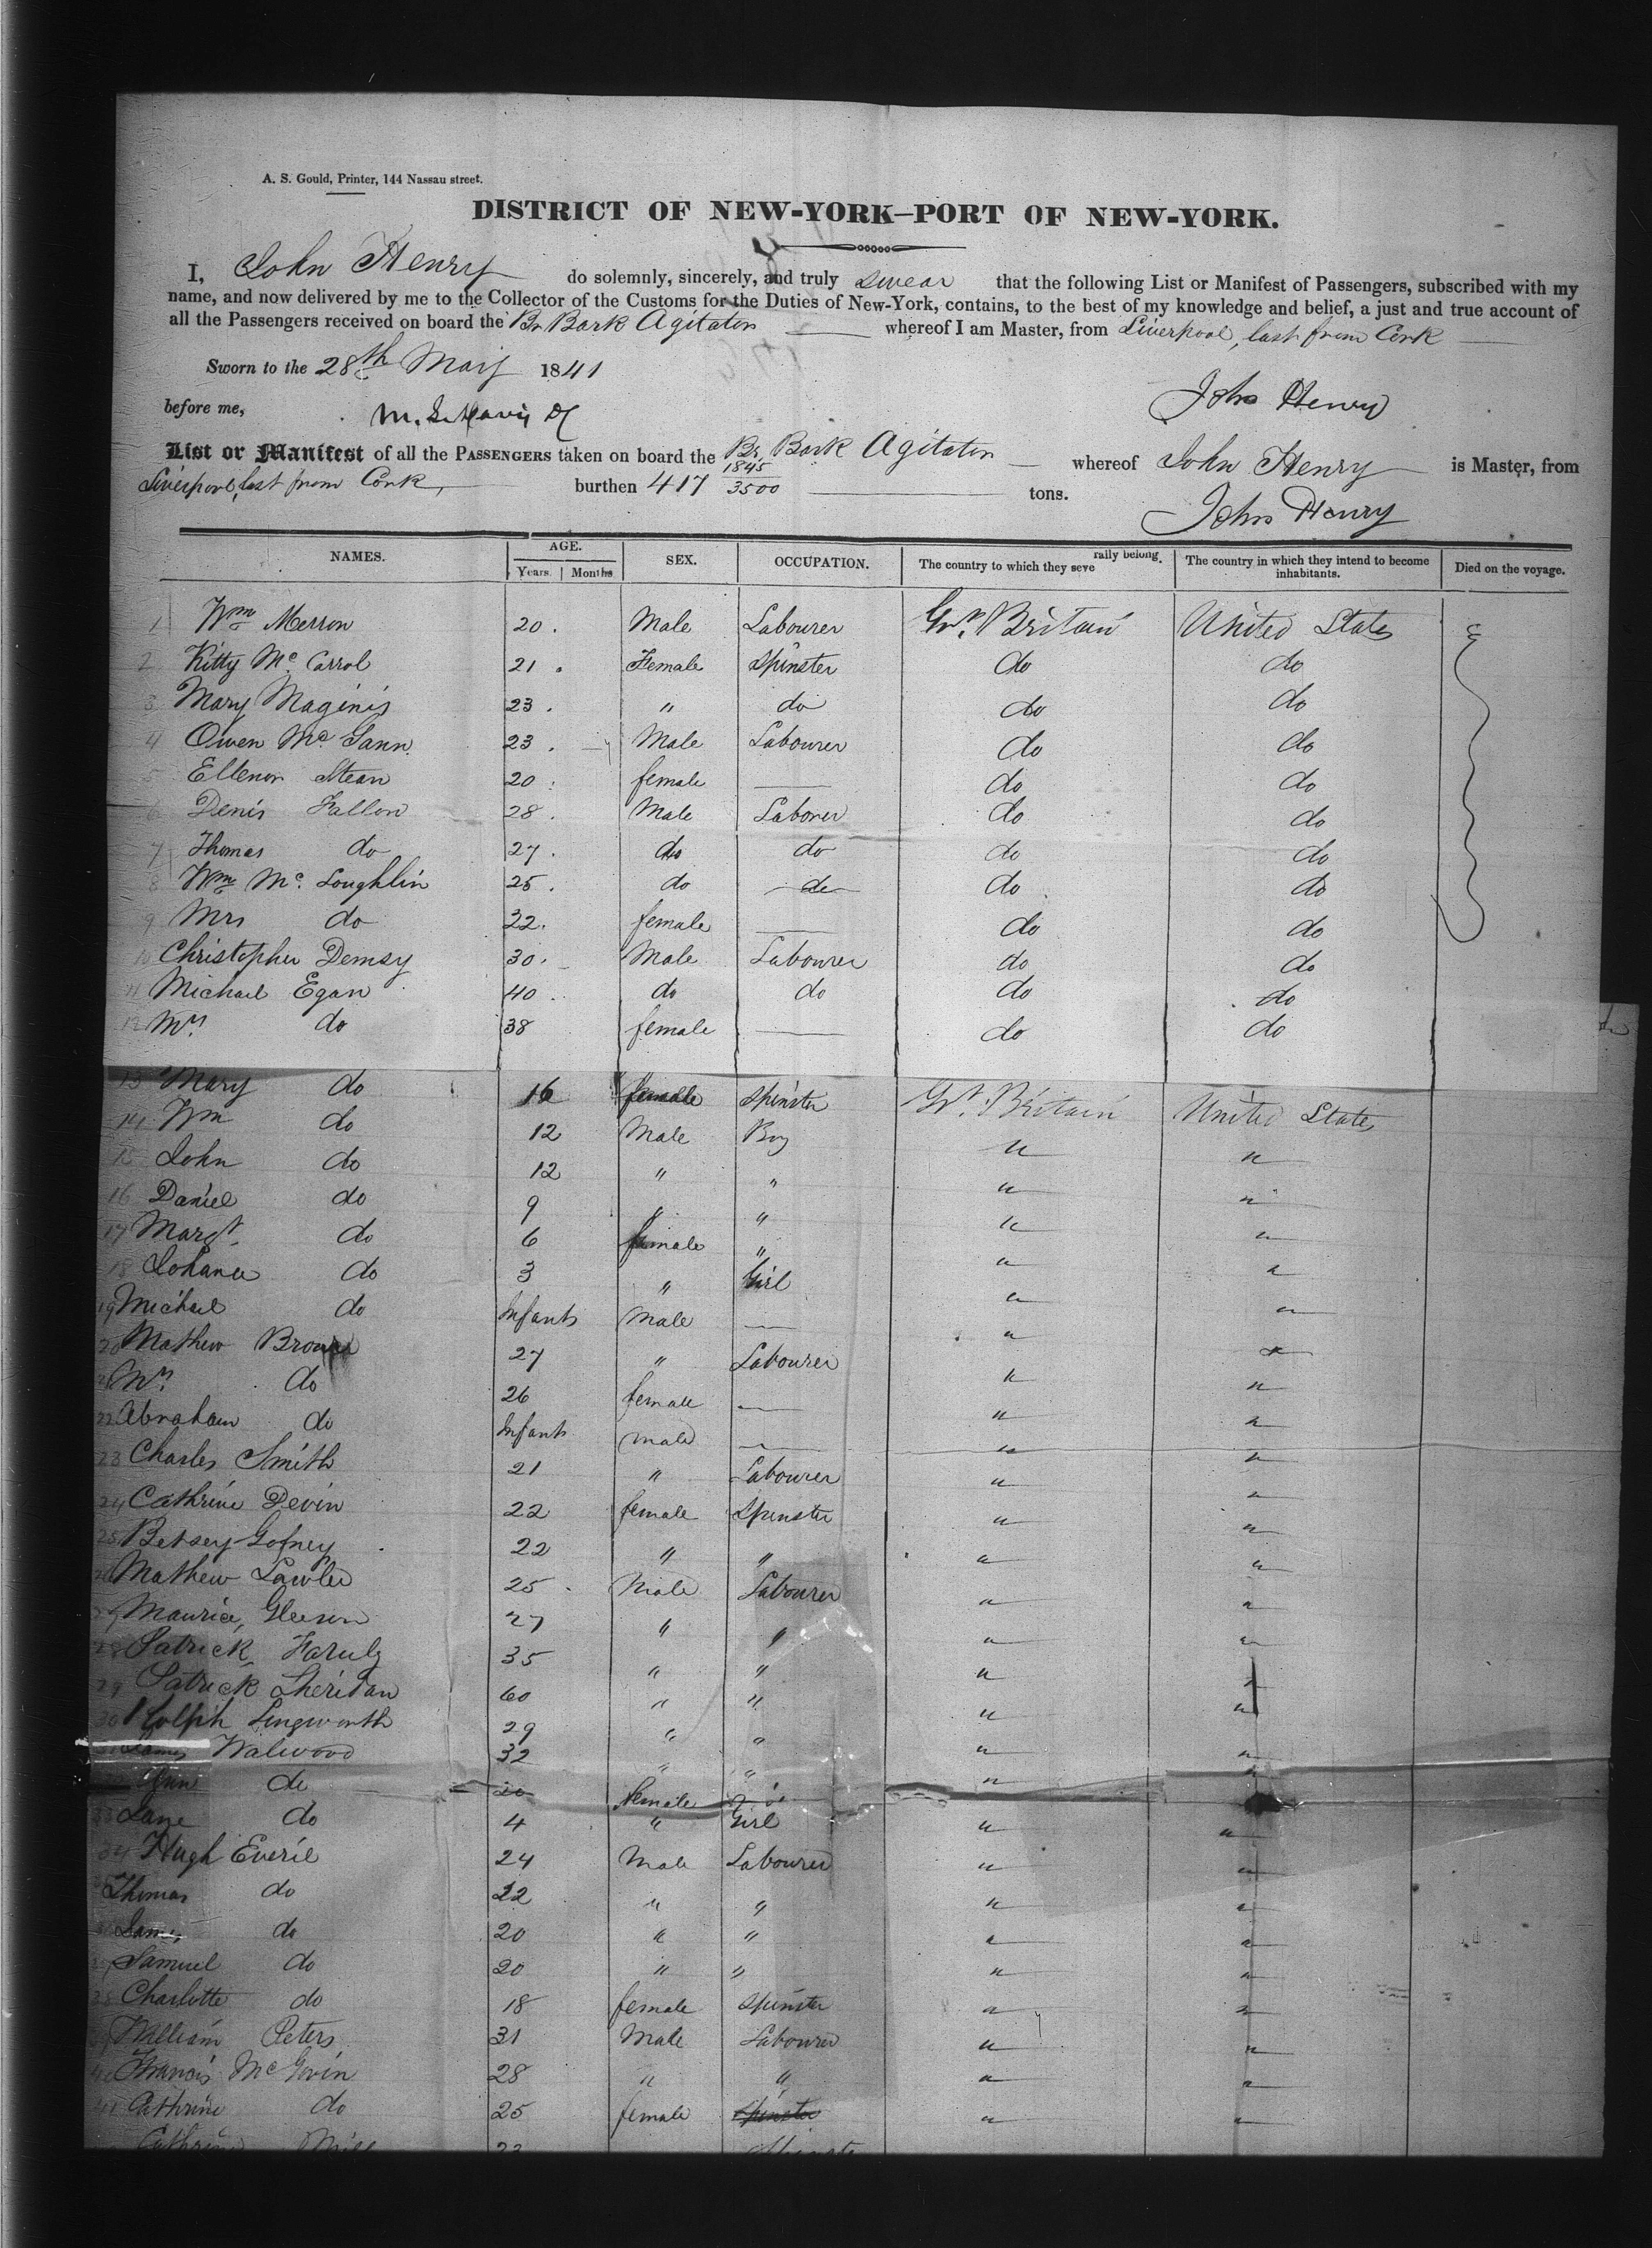 A. S. Gould, Printer, 144 Nassau street.
DISTRICT OF NEW-YORK—PORT OF NEW-YORK.
I, John Henry do solemnly, sincerely, and truly swear that the following List or Manifest of Passengers, subscribed with my
name, and now delivered by me to the Collector of the Customs for the Duties of New-York, contains, to the best of my knowledge and belief, a just and true account of
all the Passengers received on board the Br Bark Agitator whereof I am Master, from Liverpool, last from Cork
Sworn to the 28th May 1841
John Henry
before me,
List or Manifest of all the PASSENGERS taken on board the Br. Bark Agitator whereof John Henry is Master, from
Liverpool, last from Cork, burthen 417 1845/3500 tons.
John Henry
NAMES. AGE. Years. Months SEX. OCCUPATION. The country to which they seve rally belong. The country in which they intend to become inhabitants. Died on the voyage.
1 Wm Merron 20 Male Labourer Gt. Britain United States
2 Kitty Mc Carrol 21 Female Spinster do do
3 Mary Maginis 23 " do do do
4 Owen Mc Gann 23 Male Labourer do do
5 Ellenor Stean 20 female — do do
6 Denis Fallon 28 Male Laborer do do
7 Thomas do 27 do do do do
8 Wm Mc Loughlin 25 do do do do
9 Mrs do 22 female — do do
10 Christopher Demsy 30 Male Labourer do do
11 Michael Egan 40 do do do do
12 Mrs do 38 female — do do
13 Mary do 16 female Spinster Gt. Britain United States
14 Wm do 12 Male Boy " "
15 John do 12 " " " "
16 Daniel do 9 " " " "
17 Margt. do 6 female " " "
18 Johana do 3 " Girl " "
19 Michael do Infants Male — " "
20 Mathew Brown 27 " Labourer " "
21 Mrs do 26 female — " "
22 Abraham do Infants male — " "
23 Charles Smith 21 " Labourer " "
24 Cathrine Devin 22 female Spinster " "
25 Betsey Gofney 22 " " " "
26 Mathew Lawler 25 Male Labourer " "
27 Maurice Gleeson 27 " " " "
28 Patrick 35 " " " "
29 Patrick Sheridan 60 " " " "
30 Lingworth 29 " " " "
31 James Walwood 32 " " " "
Ann do 20 female "
33 Jane do 4 " Girl " "
34 Hugh Everie 24 Male Labourer " "
Thomas do 22 " " " "
James do 20 " " " "
37 Samuel do 20 " " " "
38 Charlotte do 18 female Spinster " "
39 William Peters 31 Male Labourer " "
40 Francis McGovin 28 " " " "
41 Cathrine do 25 female Spinster " "
Cathrine 23